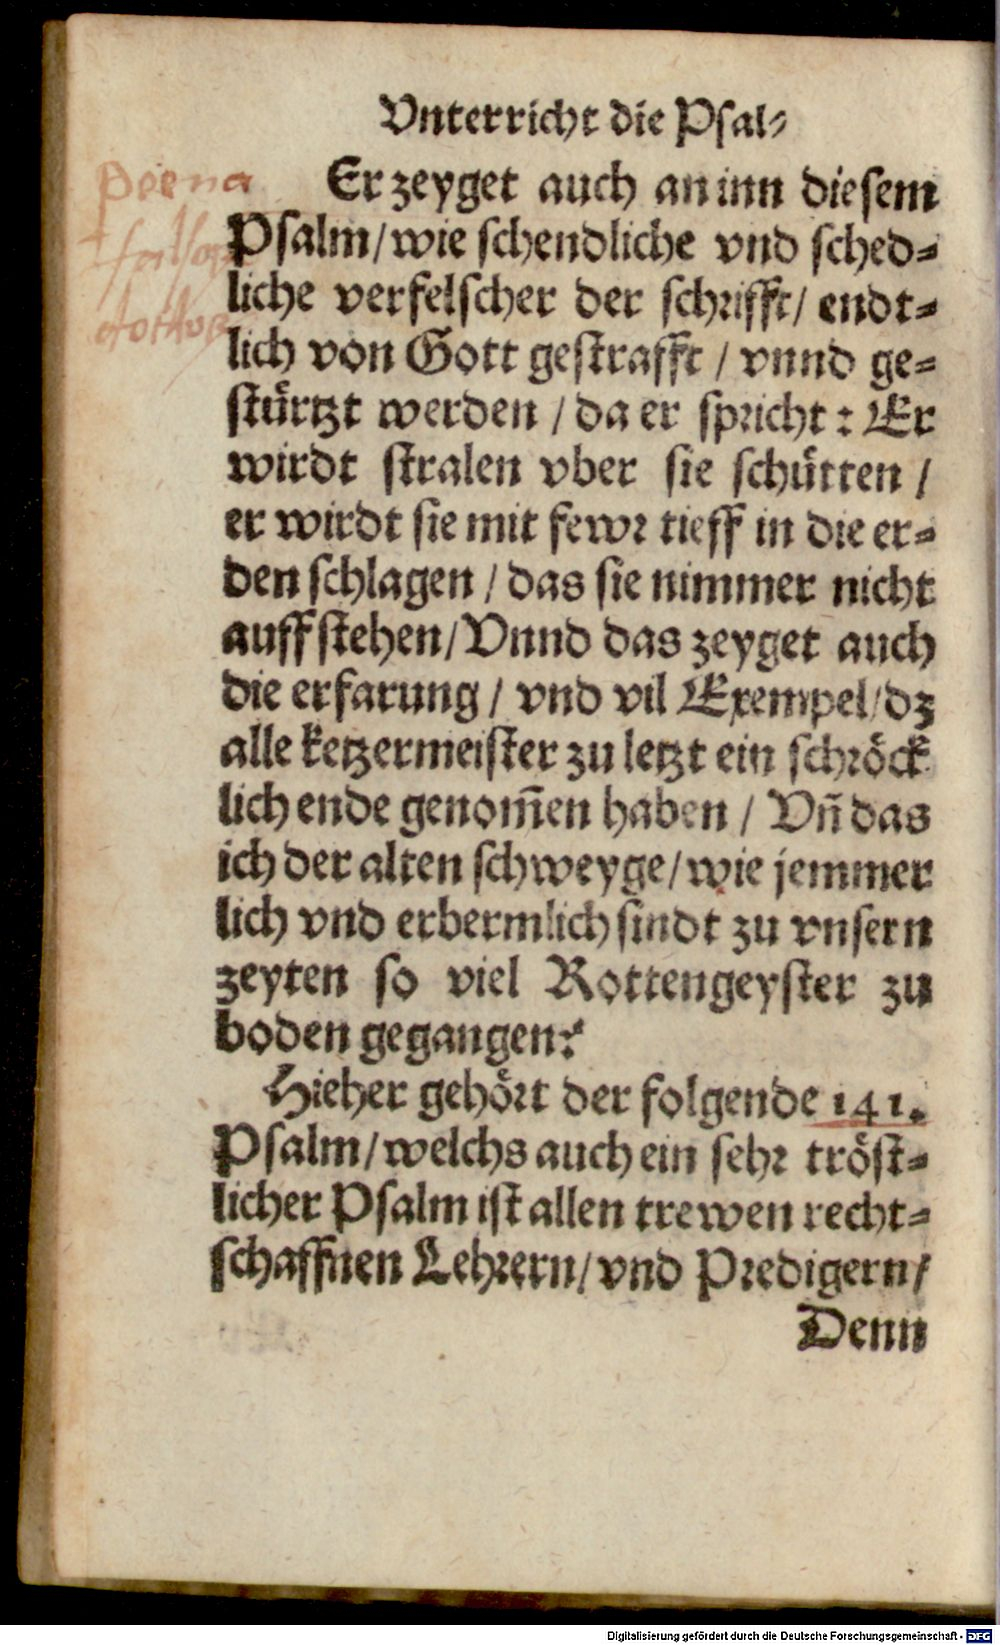 Vnterricht die Psal⸗
Poena
Er zeyget auch an inn diesem
Psalm/ wie schendliche vnd sched⸗
liche verfelscher der schrifft/ endt⸗
lich von Gott gestrafft / vnnd ge⸗
stürtzt werden / da er spricht : Er
wirdt stralen vber sie schütten /
er wirdt sie mit fewr tieff in die er⸗
den schlagen / das sie nimmer nicht
auff stehen/ Vnnd das zeyget auch
die erfarung / vnd vil Exempel/ dz
alle ketzermeister zu letzt ein schröck
lich ende genom̃en haben / Vñ das
ich der alten schweyge/ wie jemmer
lich vnd erbermlich sindt zu vnsern
zeyten so viel Rottengeyster zu
boden gegangen?
Hieher gehört der folgende 141.
Psalm/ welchs auch ein sehr tröst⸗
licher Psalm ist allen trewen recht⸗
schaffnen Lehrern/ vnd Predigern/
Denn
Digitalisierung gefördert durch die Deutsche Forschungsgemeinschaft - DFG